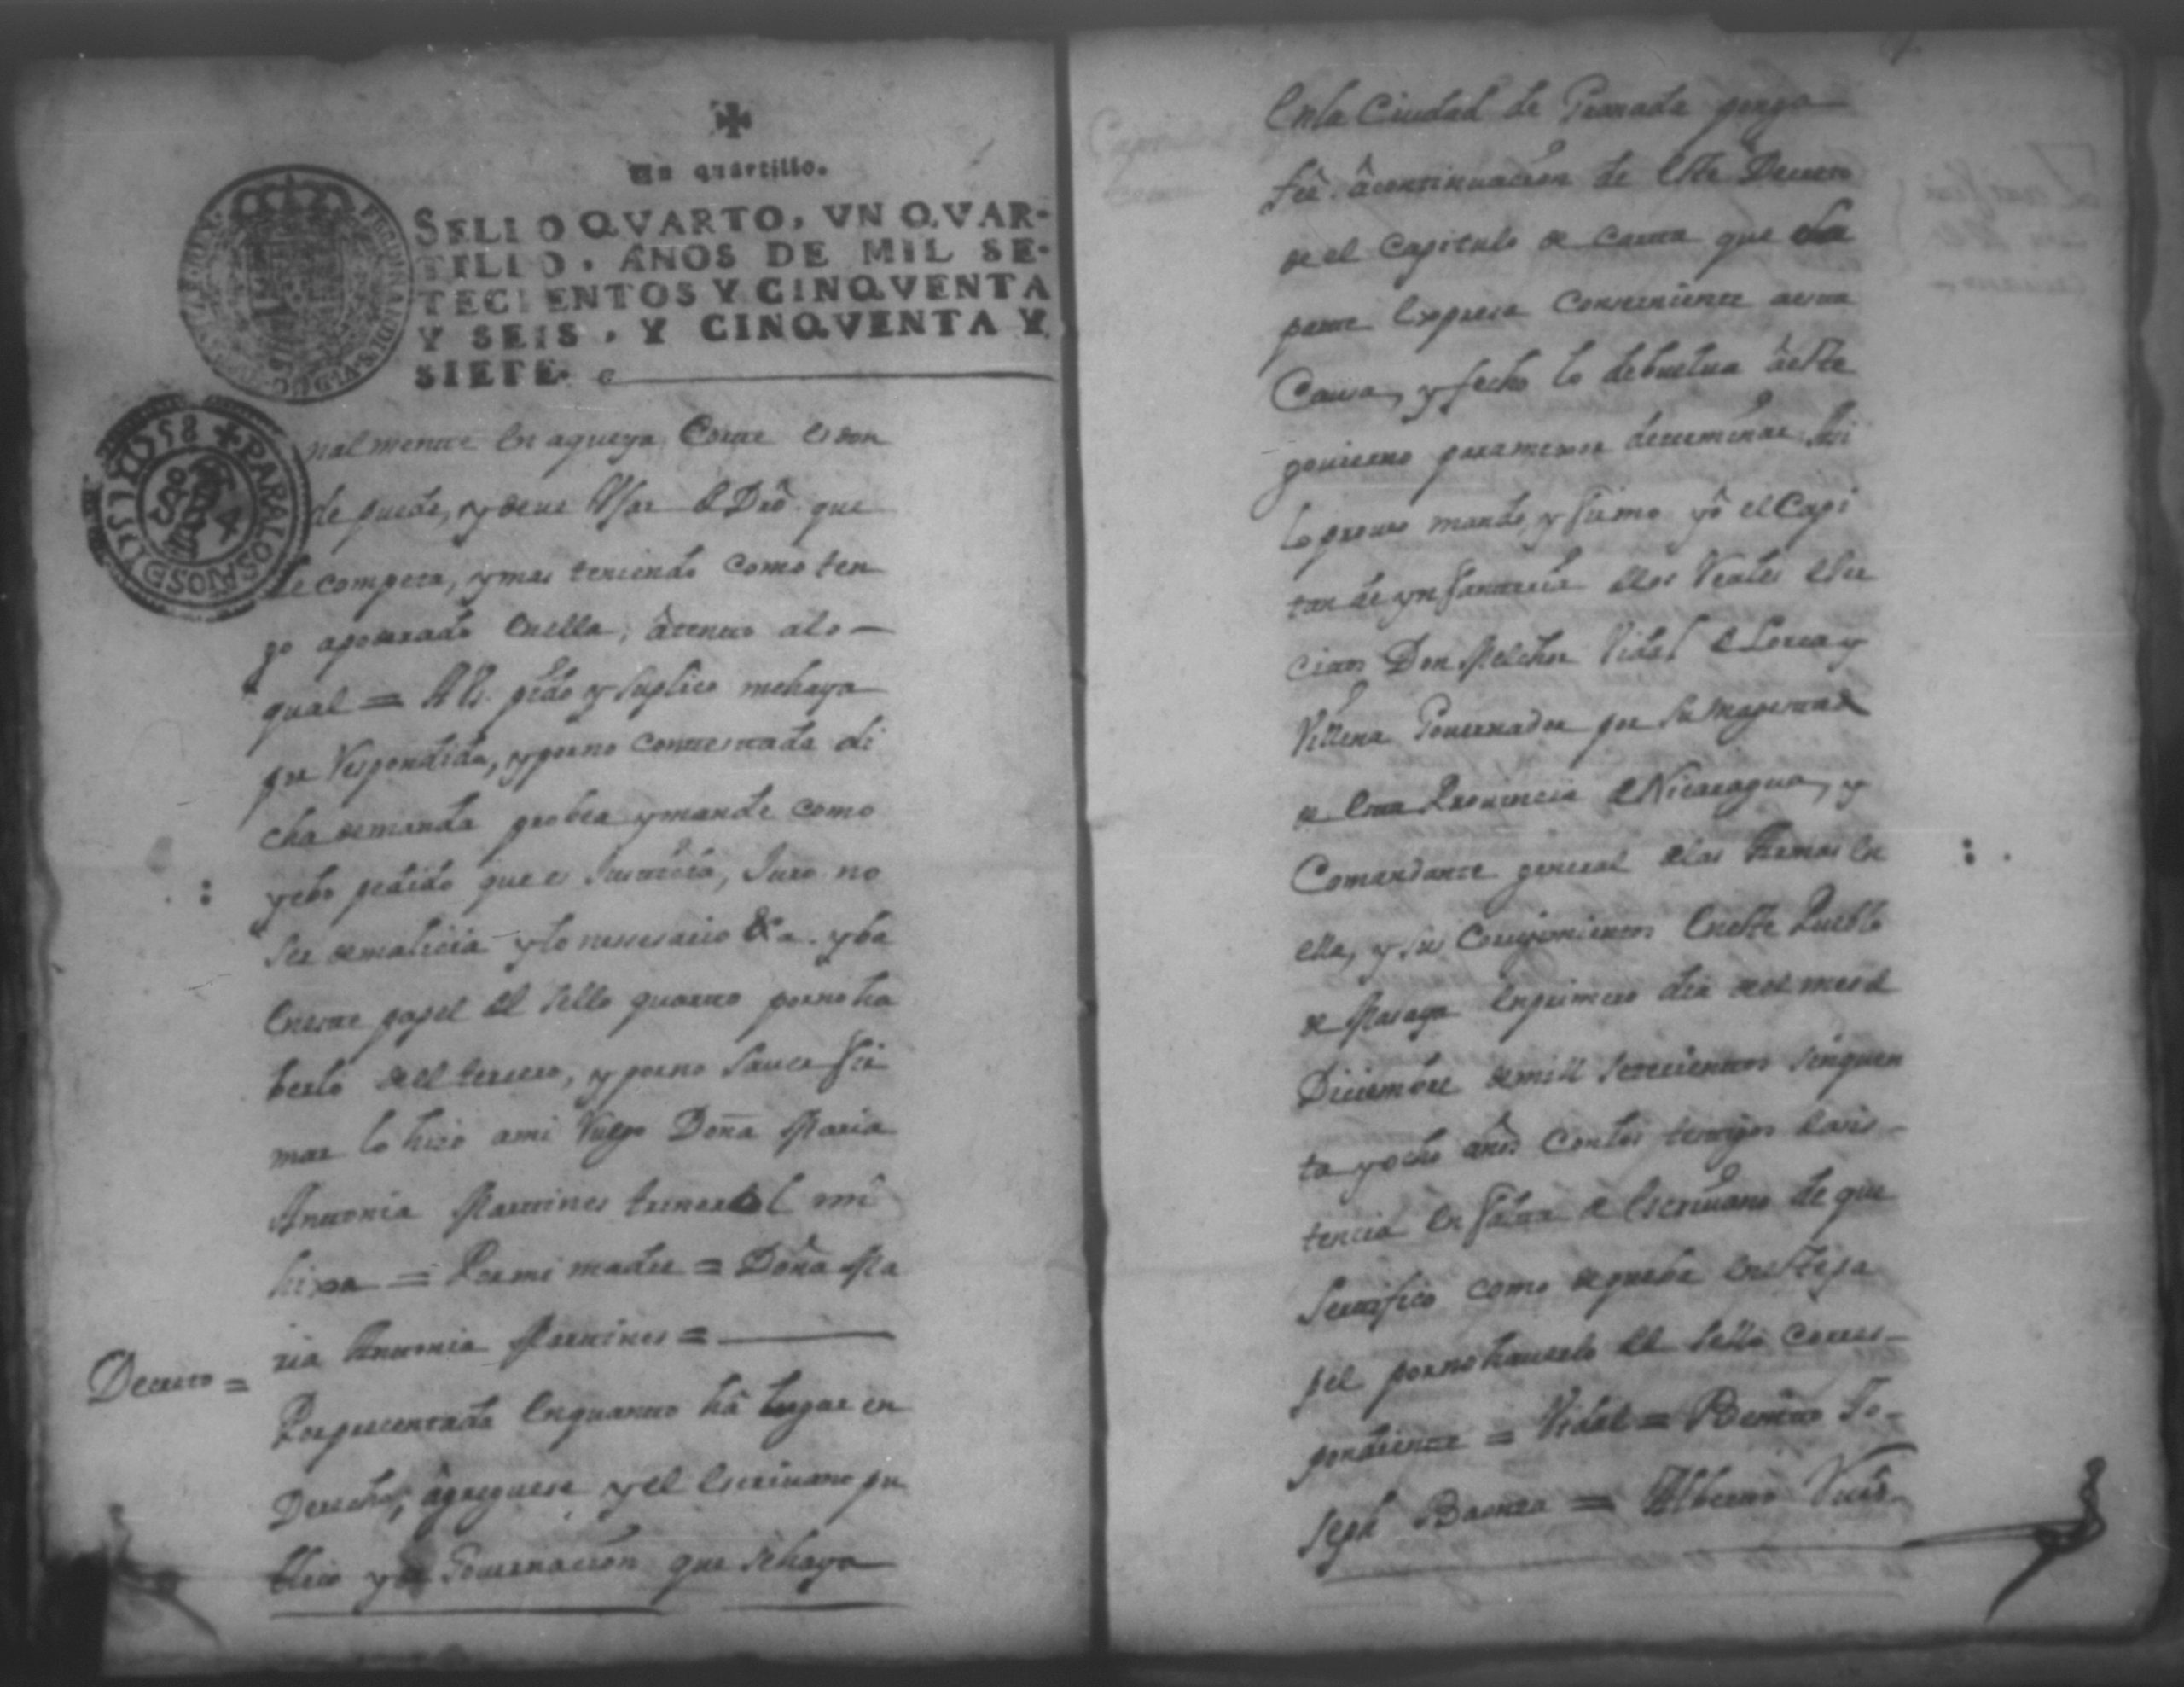 Un quartillo.
SELLO QVARTO, VN QVAR-
TILLO, AÑOS DE MIL SE-
TECIENTOS Y CINQVENTA
Y SEIS, Y CINQVENTA Y
SIETE.
PARA LOS AÑOS D 1758 Y
nalmente en aqueya Corte es don
de puede, y deue Usar el Dro. que
le competa, y mas teniendo como ten
go apoderado en ella, â tento a lo
qual = A Vs. pido y suplico mehaya
por Respondida, y por no contestada di
cha demanda probea y mande como
yebo pedido que es Justicia, Juro no
ser de malicia y lo nesesario &a. y ba
en este papel del sello quarto por no ha
berlo de el tersero, y por no sauer fir
mar lo hizo a mi Ruego Doña Maria
Antonia Martines mi
hixa = Por mi madre = Doña Ma
ria Antonia Martines =
Decreto =
Por presentada en quanto hâ lugar en
Derecho, âgreguese y el escriuano pu
blico y de Gouernacion que se haya
En la Ciudad de Granada ponga
feê. â continuacion de este Decreto
de el Capitulo de Carta que esta
parte expresa conseniente a esta
Causa, y fecho lo debuelua â este
gouierno para mexor determinar. Assi
lo proueo mando, y firmo yô el Capi
tan de ynfanteria de los Reales exer
citos Don Melchor Vidal de Lorca y
Villena Gouernador por su Magestad
de esta Prouincia de Nicaragua, y
Comandante general de las Armas en
ella, y sus Corregimientos en este Pueblo
de Masaya en primero dia de el mes de
Diciembre de mill setecientos sinquen
ta y ocho años con los testigos de asis-
tencia en falta de escriuano de que
sertifico como de que ba en este pa
pel por no hauerlo del sello corres-
pondiente = Vidal = Benito Jo-
seph Baonza = Alberto